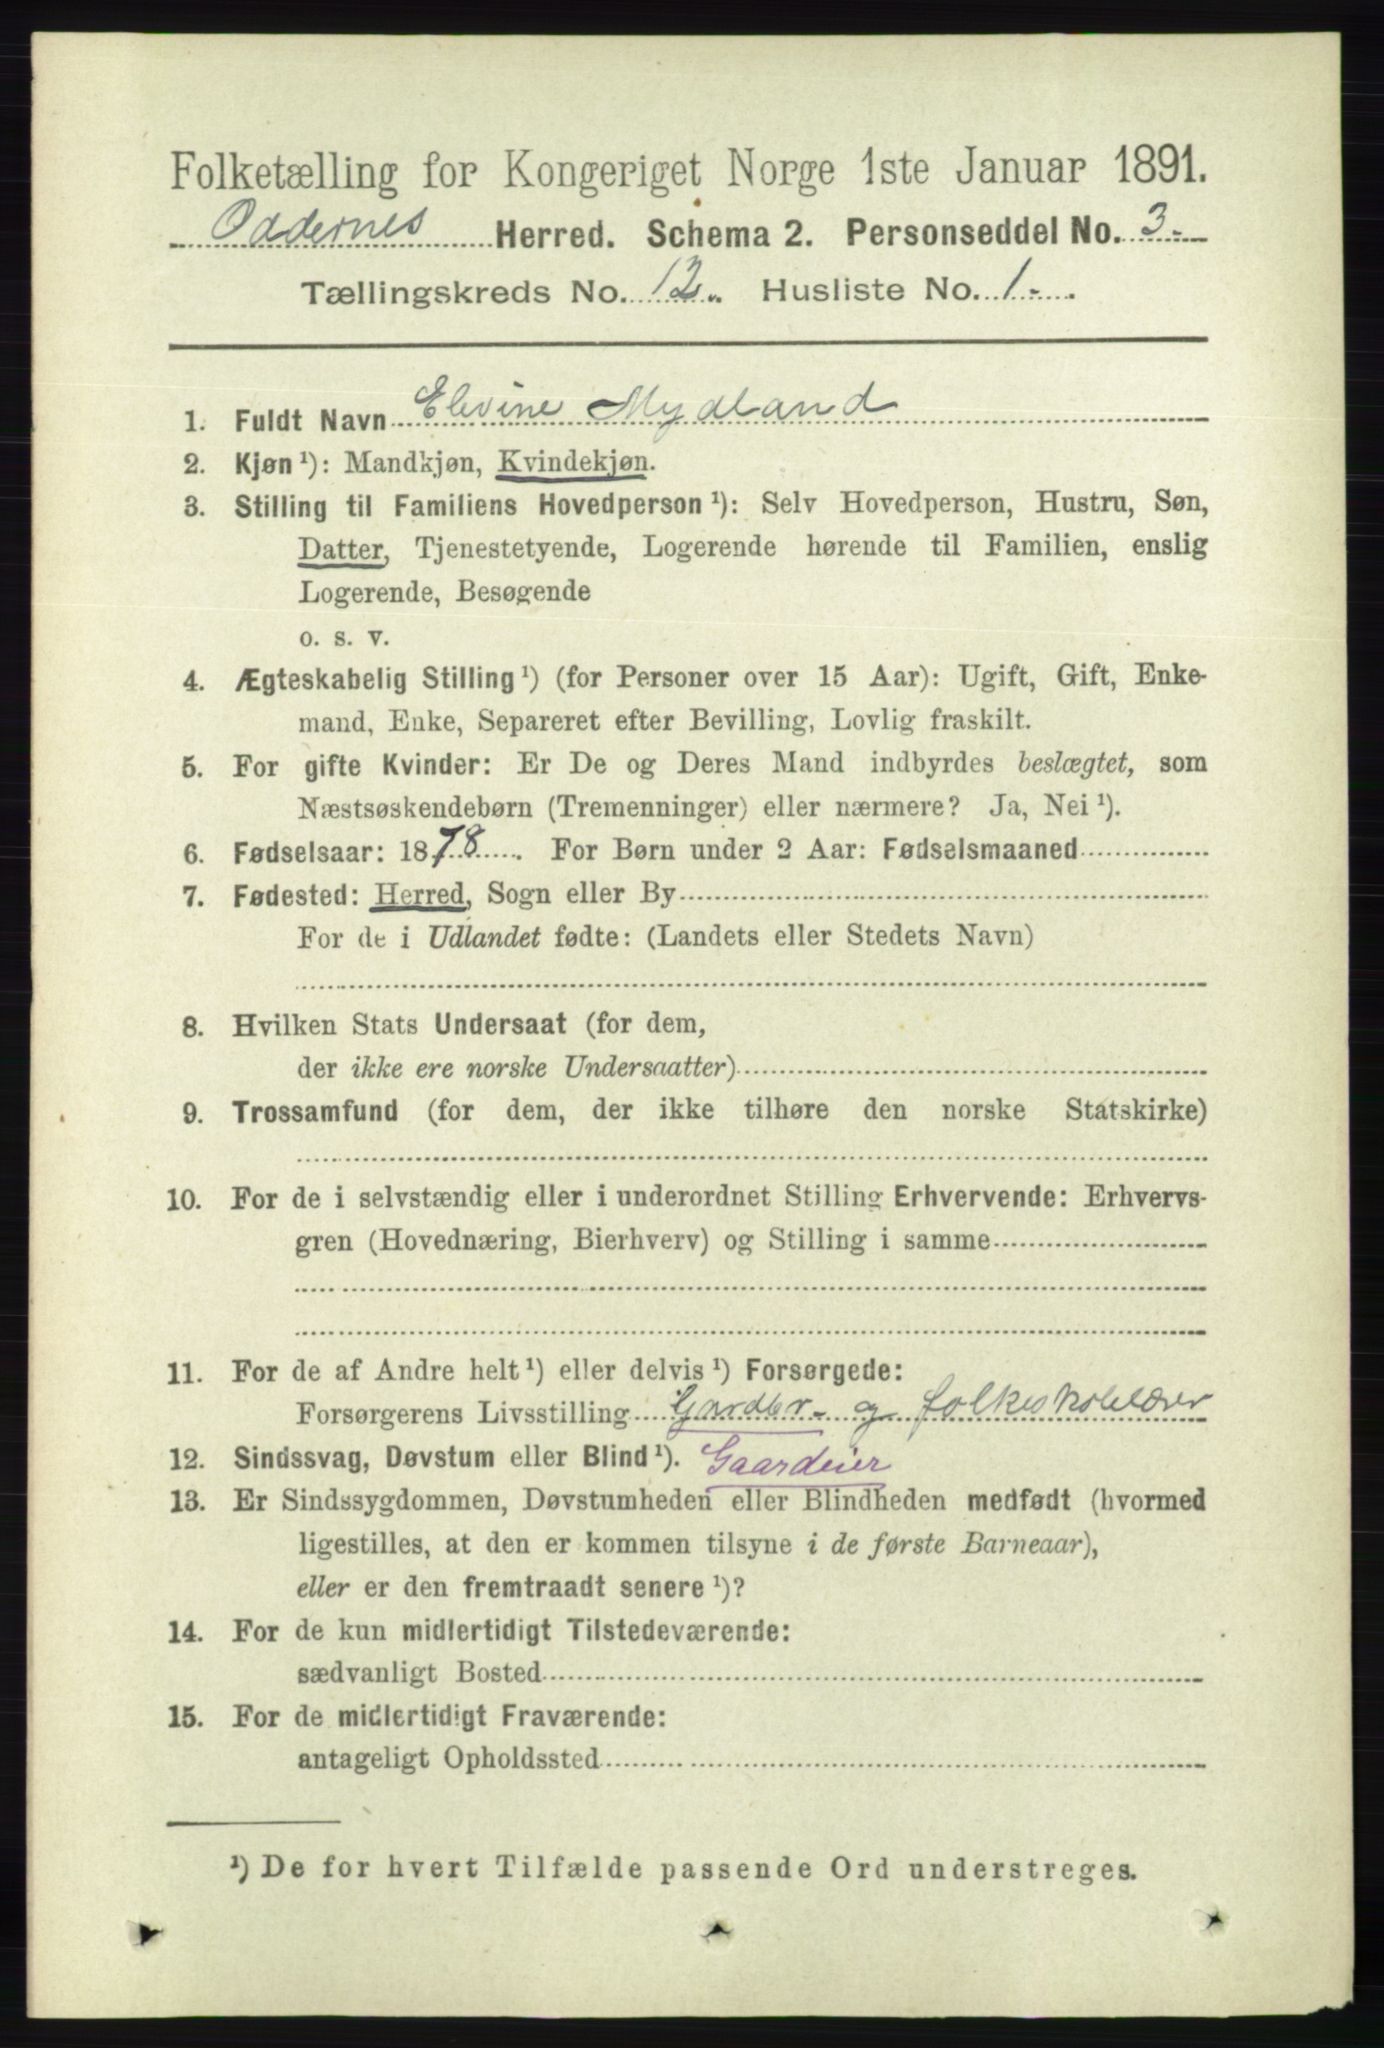 Folketælling for Kongeriget Norge 1ste Januar 1891.
Oddernes Herred. Schema 2. Personseddel No. 3.-
Tællingskreds No. 12. Husliste No. 1.-
1. Fuldt Navn Elevine Mydland
2. Kjøn ¹): Mandkjøn, Kvindekjøn.
3. Stilling til Familiens Hovedperson ¹): Selv Hovedperson, Hustru, Søn,
Datter, Tjenestetyende, Logerende hørende til Familien, enslig
Logerende, Besøgende
o. s. v.
4. Ægteskabelig Stilling ¹) (for Personer over 15 Aar): Ugift, Gift, Enke-
mand, Enke, Separeret efter Bevilling, Lovlig fraskilt.
5. For gifte Kvinder: Er De og Deres Mand indbyrdes beslægtet, som
Næstsøskendebørn (Tremenninger) eller nærmere? Ja, Nei ¹).
6. Fødselsaar: 1878. For Børn under 2 Aar: Fødselsmaaned
7. Fødested: Herred, Sogn eller By
For de i Udlandet fødte: (Landets eller Stedets Navn)
8. Hvilken Stats Undersaat (for dem,
der ikke ere norske Undersaatter)
9. Trossamfund (for dem, der ikke tilhøre den norske Statskirke)
10. For de i selvstændig eller i underordnet Stilling Erhvervende: Erhvervs-
gren (Hovednæring, Bierhverv) og Stilling i samme
11. For de af Andre helt ¹) eller delvis ¹) Forsørgede:
Forsørgerens Livsstilling Gardbr.- og folkeskolelærer
12. Sindssvag, Døvstum eller Blind ¹). Gaardeier
13. Er Sindssygdommen, Døvstumheden eller Blindheden medfødt (hvormed
ligestilles, at den er kommen tilsyne i de første Barneaar),
eller er den fremtraadt senere ¹)?
14. For de kun midlertidigt Tilstedeværende:
sædvanligt Bosted
15. For de midlertidigt Fraværende:
antageligt Opholdssted
¹) De for hvert Tilfælde passende Ord understreges.